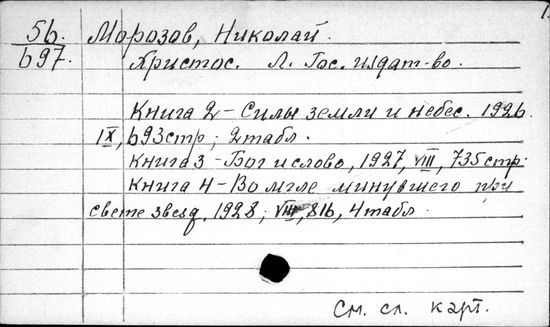 56. Морозов, Николай.
697. Христос. Л. Гос. издат-во.
Книга 2 – Силы земли и небес. 1926.
IX, 693 стр; 2 табл.
Книга 3 – Бог и слово, 1927, VIII, 735 стр.
Книга 4 – Во мгле минувшего при
свете звезд. 1928; VIII, 816, 4 табл.
См. сл. карт.